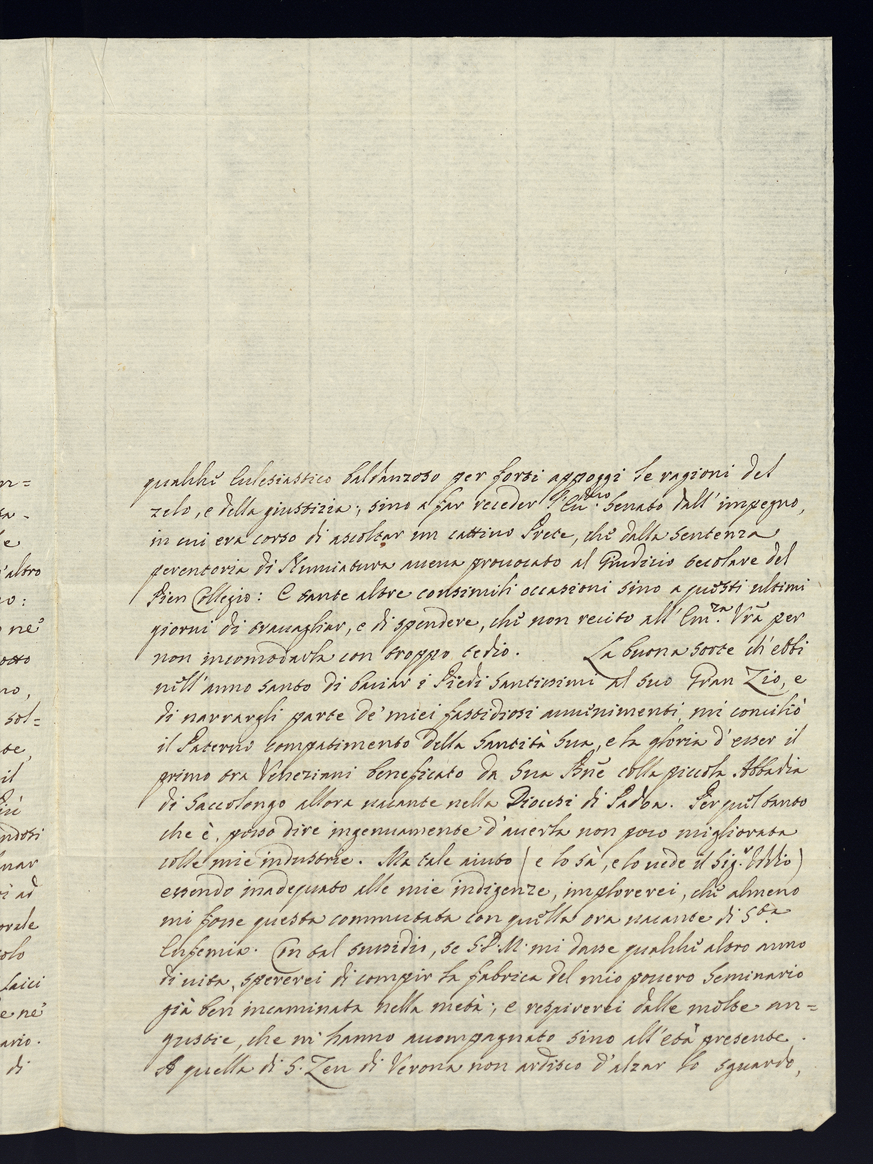 n=
ta-
e
'altro
no:
o nè
otto
no,
sol=
te,
il
Più
ndosi
nar
i ad
orale
olo
Laici
e nè
ario.
di
qualche Eclesiastico baldanzoso per forti appoggi le ragioni del
zelo, e della giustizia; sino a far receder l'Ecc.mo Senato dall'impegno,
in cui era corso di ascoltar un cattivo Prete, che dalla sentenza
perentoria di Nunziatura aveva provocato al Giudicio secolare del
Pien Collegio: E tante altre consimili occasioni sino a questi ultimi
giorni di travagliar, e di spendere, che non recito all'Em.za Vra per
non incomodarla con troppo tedio. La buona sorte ch'ebbi
nell'anno santo di baciar i Piedi Santissimi al suo Gran Zio, e
di narrargli parte de' miei fastidiosi avvenimenti, mi conciliò
il Paterno compatimento della Santità Sua, e la gloria d'esser il
primo tra Veneziani beneficato da Sua Bne colla piccola Abbadia
di Saccolongo allora vacante nella Diocesi di Padoa. Per quel tanto
che è, posso dire ingenuamente d'averla non poco migliorata
colle mie industrie. Ma tale aiuto (e lo sà, e lo vede il Sig.r Iddio)
essendo inadequato alle mie indigenze, implorerei, che almeno
mi fosse questa commutata con quella ora vacante di S.ta
Eufemia. Con tal sussidio, se S.D.M. mi dasse qualche altro anno
di vita, spererei di compir la fabrica del mio povero Seminario
già ben incaminata nella metà; e respirerei dalle molte an=
gustie, che mi hanno accompagnato sino all'età presente.
A quella di S. Zen di Verona non ardisco d'alzar lo sguardo,